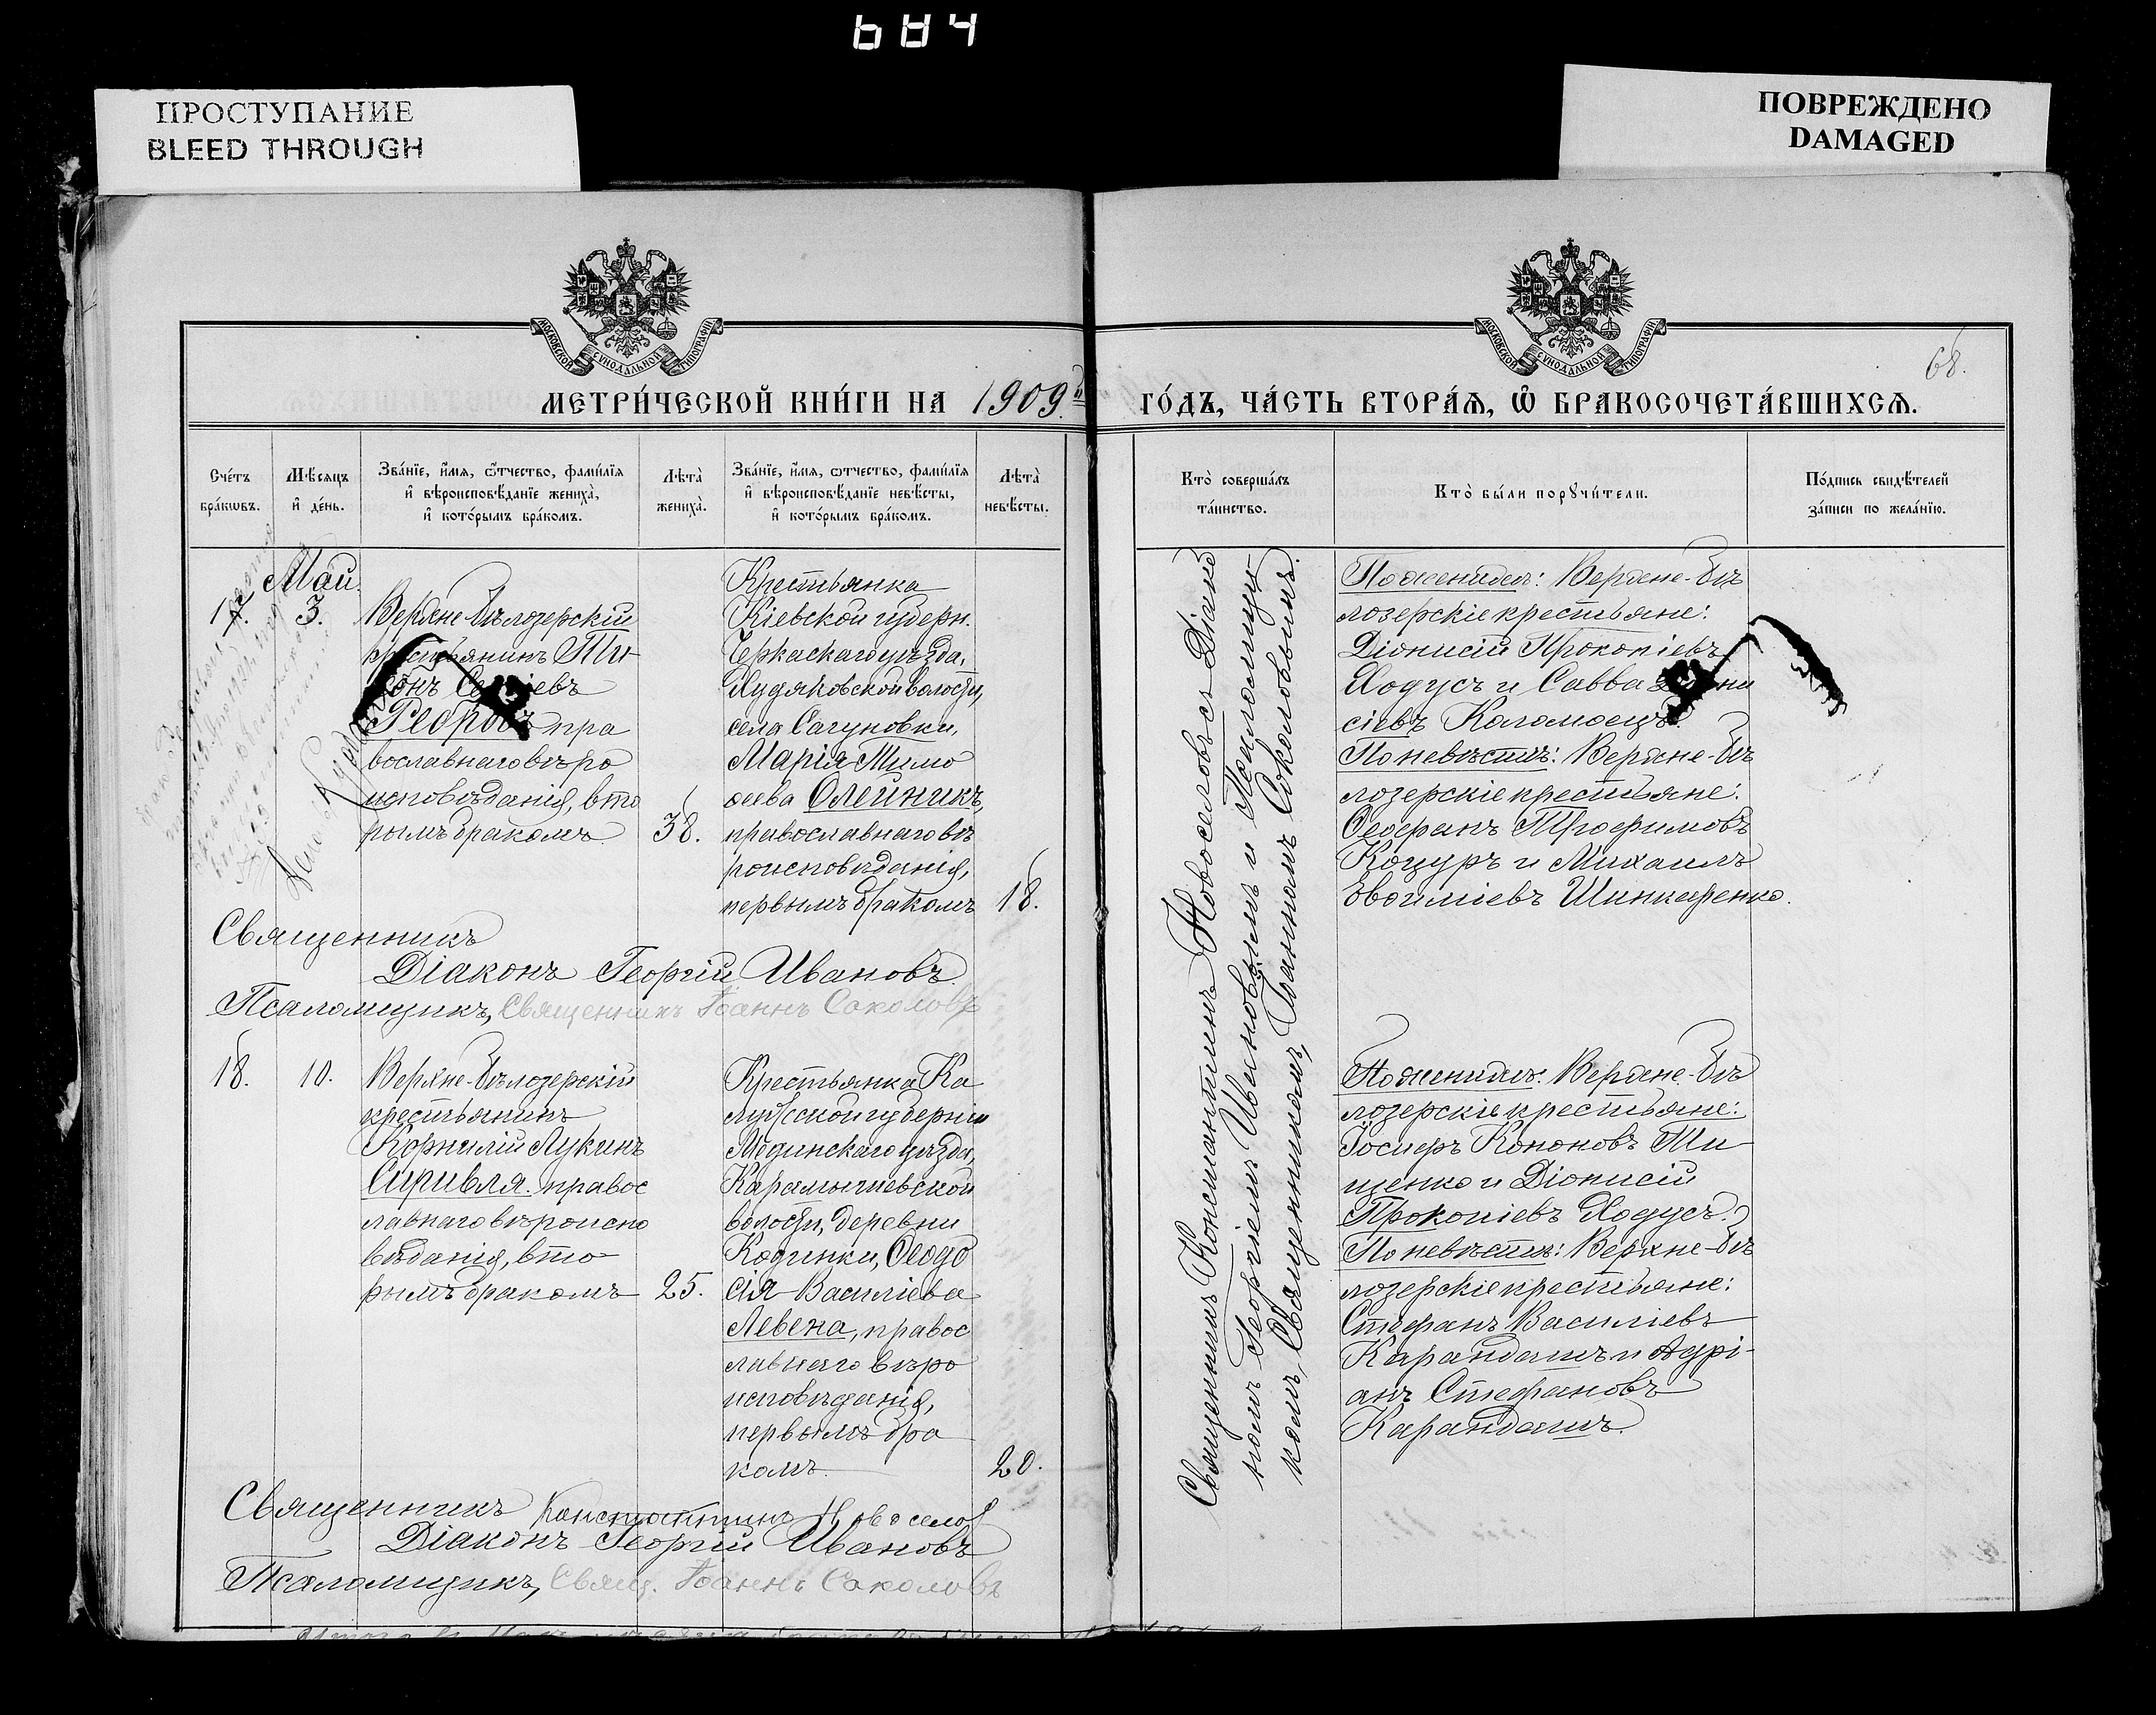 684
ПРОСТУПАНИЕ
BLEED THROUGH
ПОВРЕЖДЕНО
DAMAGED
МОСКОВСКОЙ СѴНОДАЛЬНОЙ ТИПОГРАФІИ
МОСКОВСКОЙ СѴНОДАЛЬНОЙ ТИПОГРАФІИ
68.
МЕТРИ́ЧЕСКОЙ КНИ́ГИ НА 1909й
ГО́ДЪ, ЧА́СТЬ ВТОРА́Ѧ, Ѽ БРАКОСОЧЕТА́ВШИХСѦ.
Сче́тъ
бра́кѡвъ.
Мѣ́сяцъ
и҆ де́нь.
Зва́нїе, и҆́мя, ѻ҆́тчество, фами́лїя
и҆ вѣроисповѣ́данїе жениха̀,
и҆ кото́рымъ бра́комъ.
Лѣта̀
жениха̀.
Зва́нїе, и҆́мя, ѻтчество, фами́лїя
и҆ вѣроисповѣ́данїе невѣ́сты,
и҆ кото́рымъ бра́комъ.
Лѣта̀
невѣ́сты.
Кто̀ соверша́лъ
та́инство.
Кто̀ бы́ли порꙋчи́тели.
По́дпись свидѣ́телей
за́писи по жела́нїю.
Май.
17.
3.
Верхне-Бѣлозерскій
крестьянинъ Ти-
Ребровъ пра
вославнаго вѣро
исповѣданія, вто
рымъ бракомъ
38.
Крестьянка
Кіевской губерн.
Черкаскаго уѣзда,
Худяковской волости,
села Сагуновки,
Марія Тимо
ѳеева Олейникъ,
православнаго вѣ
роисповѣданія,
первымъ бракомъ
18.
Священникъ
Діаконъ Георгій Ивановъ
Псаломщикъ, Священникъ Іоаннъ Соколовъ
Священникъ Константинъ Новоселовъ съ Діако
номъ Георгіемъ Ивановымъ и Псаломщи
комъ, Священникомъ, Іоанномъ Соколовымъ.
По женихѣ: Верхне-Бѣ
лозерскіе крестьяне:
Діонисій Прокопіевъ
Ходусъ и Савва
сіевъ Коломоецъ.
По невѣстѣ: Верхне-Бѣ
лозерскіе крестьяне:
Ѳеофанъ Трофимовъ
Коцуръ и Михаилъ
Евѳиміевъ Шинкаренко.
18.
10.
Верхне-Бѣлозерскій
крестьянинъ
Корнилій Лукинъ
правос
лавнаго вѣроиспо
вѣданія, вто
рымъ бракомъ
25.
Крестьянка Ка
лужсской губерніи
Мединскаго уѣзда,
Карамышевской
волости, деревни
Кодинки, Ѳеодо
сія Василіева
Левена, правос
лавнаго вѣро
исповѣданія,
первымъ бра
комъ.
20.
По женихѣ: Верхне-Бѣ
лозерскіе крестьяне:
Іосифъ Кононовъ Ти
щенко и Діонисій
Прокопіевъ Ходусъ.
По невѣстѣ: Верхне-Бѣ
лозерскіе крестьяне:
Стефанъ Василіевъ
Карандашъ и Адрі-
анъ Стефановъ
Карандашъ.
Священникъ Константинъ Новоселов
Діаконъ Георгій Ивановъ
Псаломщикъ, Свящ. Іоаннъ Соколовъ